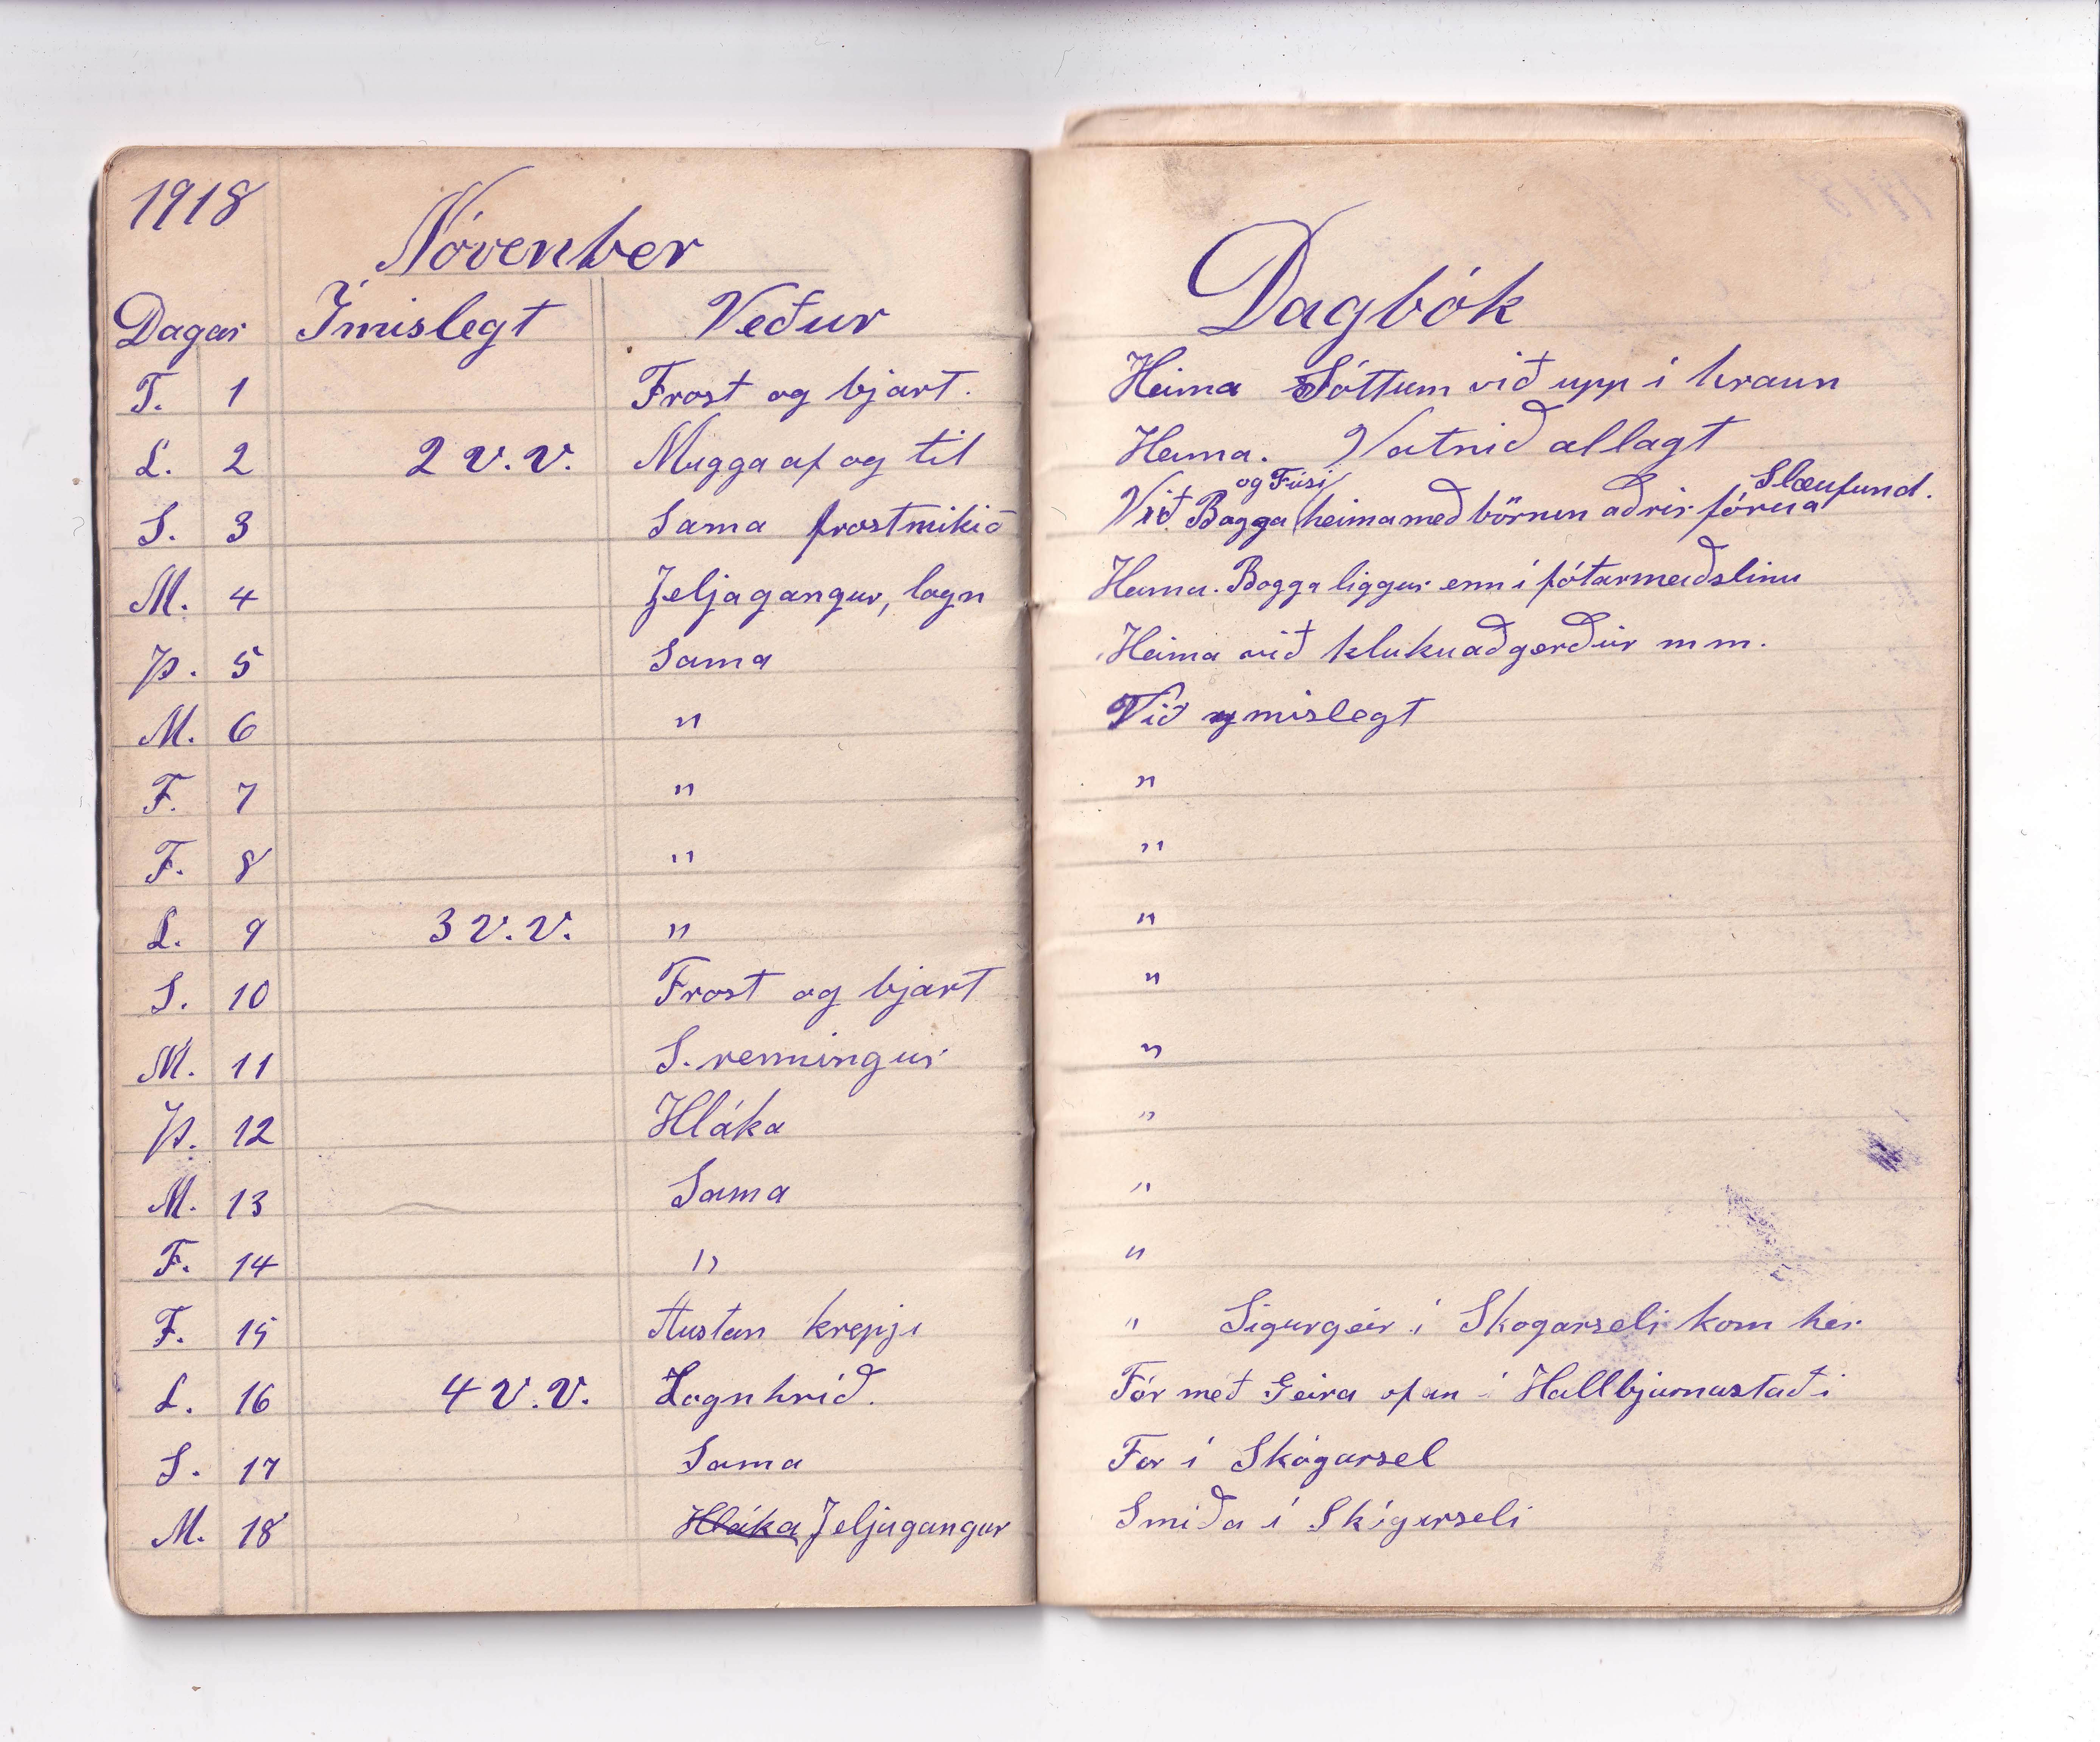 1918
Nóvenber
Dagar Ímislegt Veður
T. 1 Frost og bjart.
L. 2 2 V.V. Mugga af og til
S. 3 Sama frostmikið
M. 4 Jeljagangur, logn
Þ. 5 Sama
M. 6 "
F. 7 "
F. 8 "
L. 9 3 V.V. "
S. 10 Frost og bjart
M. 11 S. renningur
Þ. 12 Hláka
M. 13 Sama
F. 14 "
F. 15 Austan krepji
L. 16 4 V.V. Logn hríð.
S. 17 Sama
M. 18 Hláka Jeljagangur
Dagbók
Heima Sóttum við upp í hraun
Heima. Vatnið allagt
og Fúsi Slæufund.
Við Bogga heima með börnun aðrir fóru a
Heima. Bogga liggur enn í fótarmeiðslinu
Heima við klukuaðgerðir m m.
Við ymislegt
"
"
"
"
"
"
"
"
" Sigurgeir í Skogarseli kom hér
Fór með Geira ofan í Hallbjarnastaði
For í Skógarsel
Smiða í Skógarseli